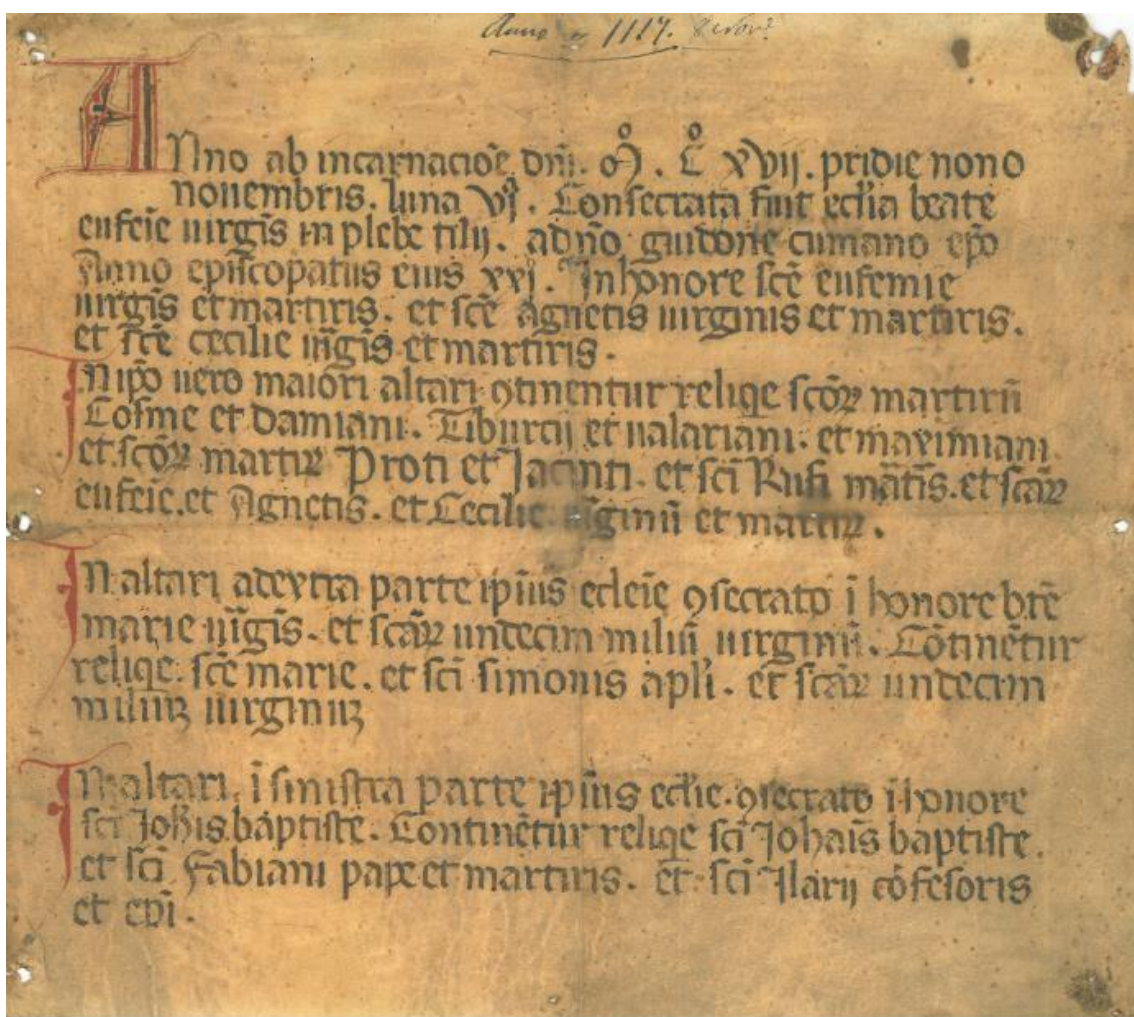 Anno 1117.
ANno ab incarnacioē dnī. Mº. Cº XVij. pridie nono
nouembris. luna Vj. Consecrata fuit ecl'ia beate
eufeīe uirgīs in plebe tilij. a dn̄o guidone cumano ep̄o
Anno epīscopatus eius xxj. In honore scē eufemie
uirgīs et martiris. et scē Agnetis uirginis et martiris.
et scē cecilie uīgīs et martiris.
IN ip̄o uero maiori altari ꝯtinentur reliqe scōꝝ martirū
Cosme et Damiani. Tiburcij et ualariani. et maximiani
et scōꝝ martiꝝ Proti et Jacinti. et scī Rufi mātīs. et scāꝝ
eufeīe. et Agnetis. et Cecilie uīginū et martiꝝ.
IN altari a dextra parte ip̄ius ecleīe ꝯsecrato ī honore btē
marie uīgīs. et scāꝝ undecim miliū uirginū. Cōtinētur
reliqe. scē marie. et scī simonis apl'i. et scāꝝ undecim
miliuꝫ uirginuꝫ
IN altari. ī sinistra parte ip̄ius ecl'ie. ꝯsecrato ī honore
scī Joh̄is baptiste. Continētur reliqe scī Johaīs baptiste.
et scī Fabiani pape et martiris. et scī Jlarij cōfesoris
et epī.